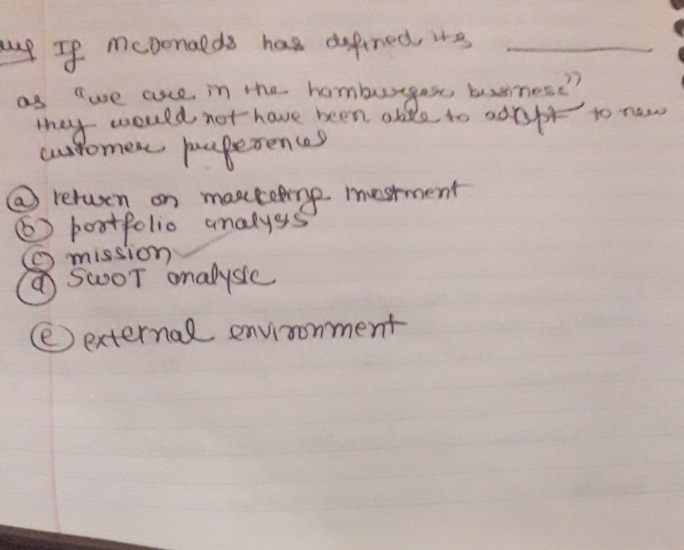 If McDonalds has defined its ________
as "we are in the hamburger business"
they would not have been able to adapt to new
customer preferences
(a) return on marketing investment
(b) portfolio analysis
(c) mission ✓
(d) SWOT analysis
(e) external environment